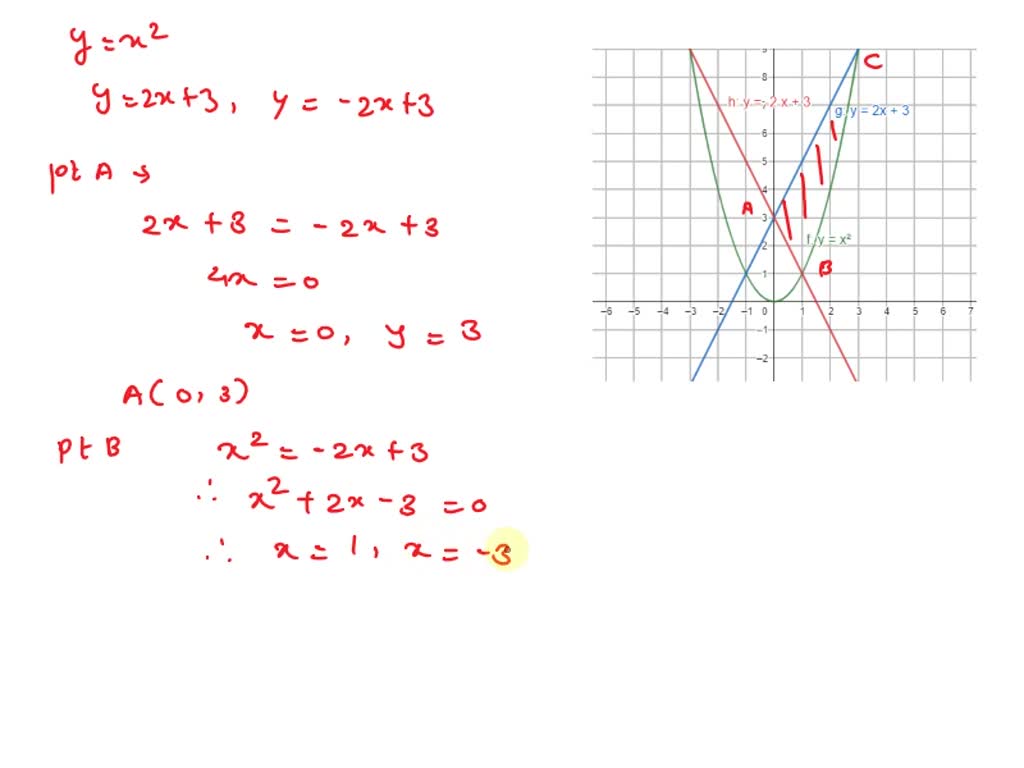 y = x²
y = 2x + 3, y = -2x + 3
pt A →
2x + 3 = -2x + 3
4x = 0
x = 0, y = 3
A(0, 3)
pt B x² = -2x + 3
∴ x² + 2x - 3 = 0
∴ x = 1, x = -3
9
C
8
h: y = -2 x + 3
7
g: y = 2x + 3
6
5
4
A
3
2
f: y = x²
B
1
-6 -5 -4 -3 -2 -1 0 1 2 3 4 5 6 7
-1
-2